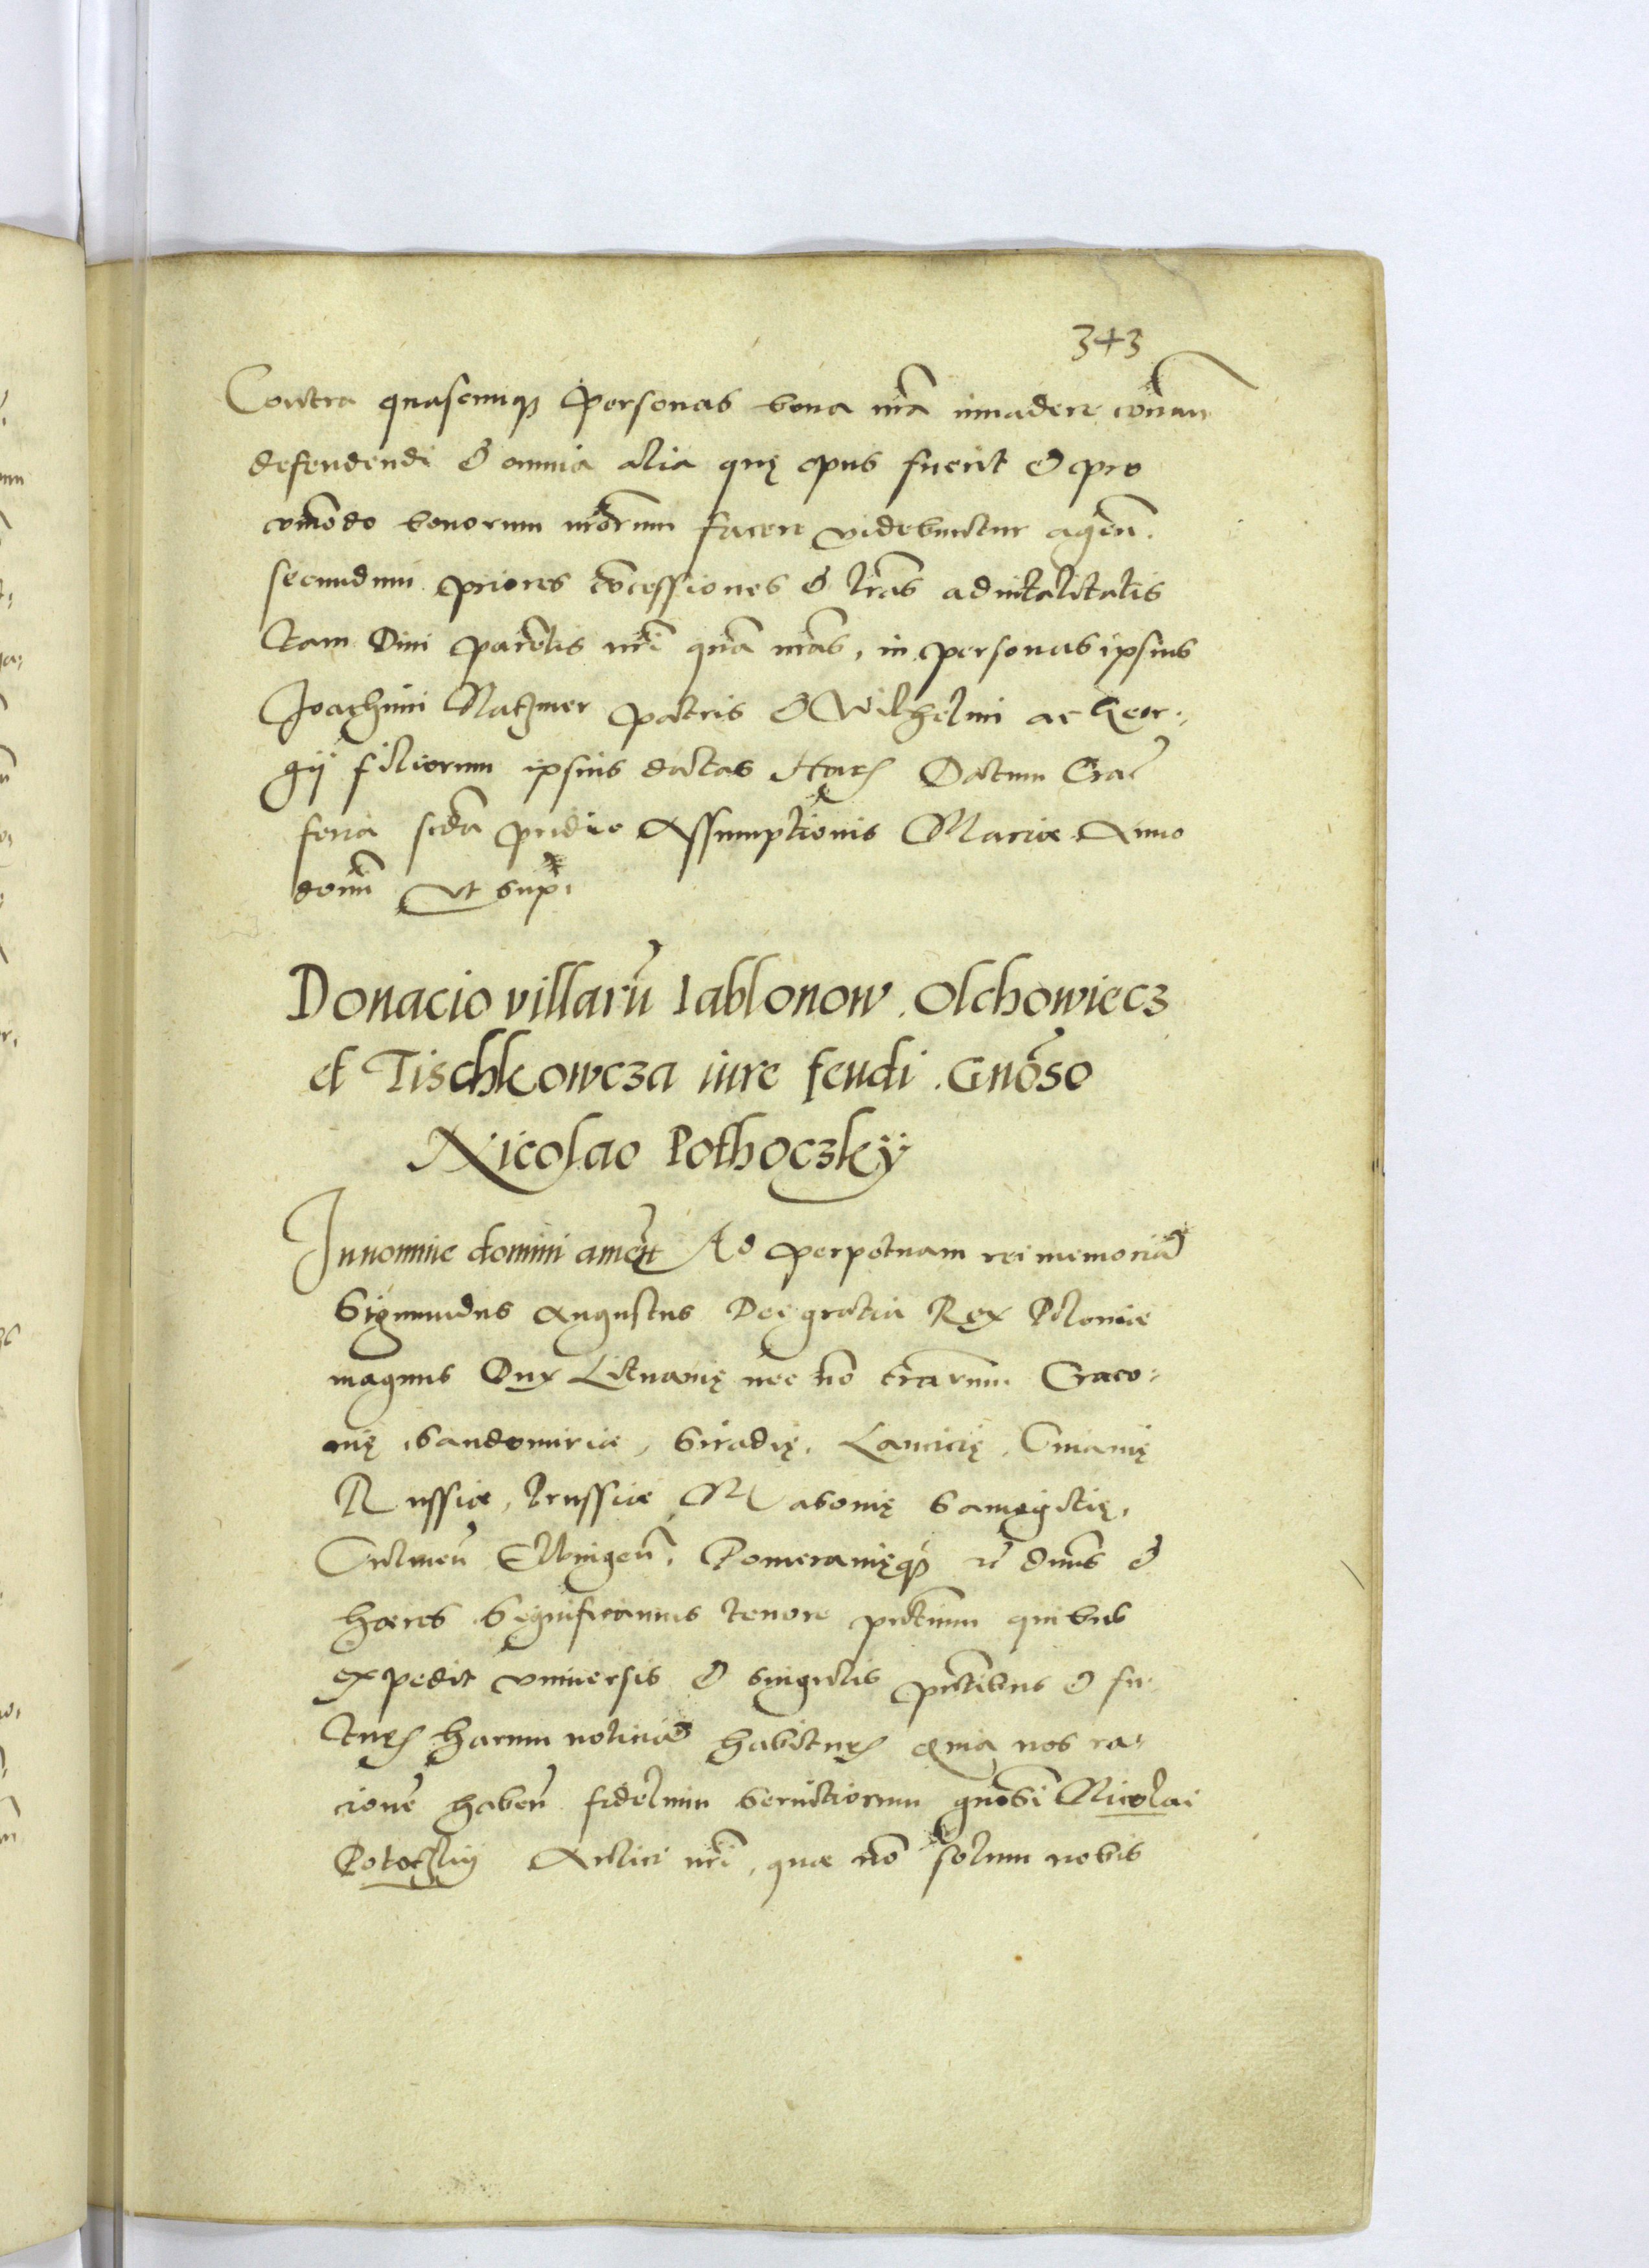 343
Contra quascunq3 personas bona nr̃a inuadere conan̄
defendendi et omnia alia quę opus fuerit et pro
com̃odo bonorum nr̃orum facere videbuntur agen̄.
secundum priores cōcessiones et lr̃as aduitalitatis
tam Diui parẽtis nr̃i quã nr̃as, in personas ipsius
Joachimi Natzmer patris et Wilhelmi ac Geor-
gij filiorum ipsius datas Haꝝ Datum Crac̃
feria scd̃a pridie Assumptionis Mariæ Anno
domĩ vt supˢ
Donacio villarũ Iablonow. Olchowiecz
et Tischkowcza iure feudi. Gnõso
Nicolao Pothoczkÿ
In nomine domini amẽn Ad perpetuam rei memoriã
Sigmundus Augustus Dei gratia Rex Poloniæ
magnus Dux Lituanię nec nõ trãrum Craco-
uię, Sandomiriæ, Siradię. Lancicię, Cuiauię
Russiæ, Prussiæ, Masouię Samogitię,
Culmeñ Elbingeñ. Pomeranięq3 rc̃ dñus et
hæres Significamus tenore pñtium quibus
expedit vniuersis et singulis pñtibus et fu-
turꝝ harum noticiã habiturꝝ Quia nos ra-
cionẽ habeñ fidelium seruitiorum gnõsi Nicolai
Pototzkij Aulici nr̃i, quæ nõ solum nobis